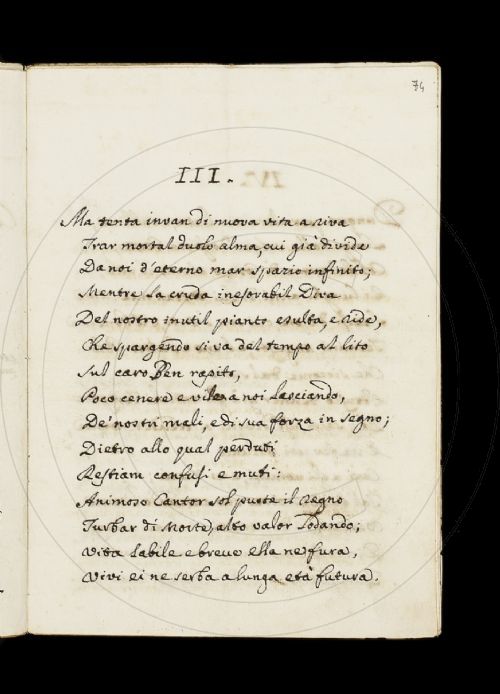 74
III.
Ma tenta invan di nuova vita a riva
Trar mortal duolo alma, cui già divide
Da noi d'eterno mar spazio infinito;
Mentre la cruda inesorabil Diva
Del nostro inutil pianto esulta, e ride,
Re spargendo si va del tempo al lito
Sul caro Ben rapito,
Poco cenere e vile a noi lasciando,
De' nostri mali, e di sua forza in segno;
Dietro allo qual perduti
Restiam confusi e muti:
Animoso Cantor sol puote il Regno
Turbar di Morte, alto valor lodando;
Vita labile e breve ella ne fura,
Vivi ei ne serba a lunga età futura.